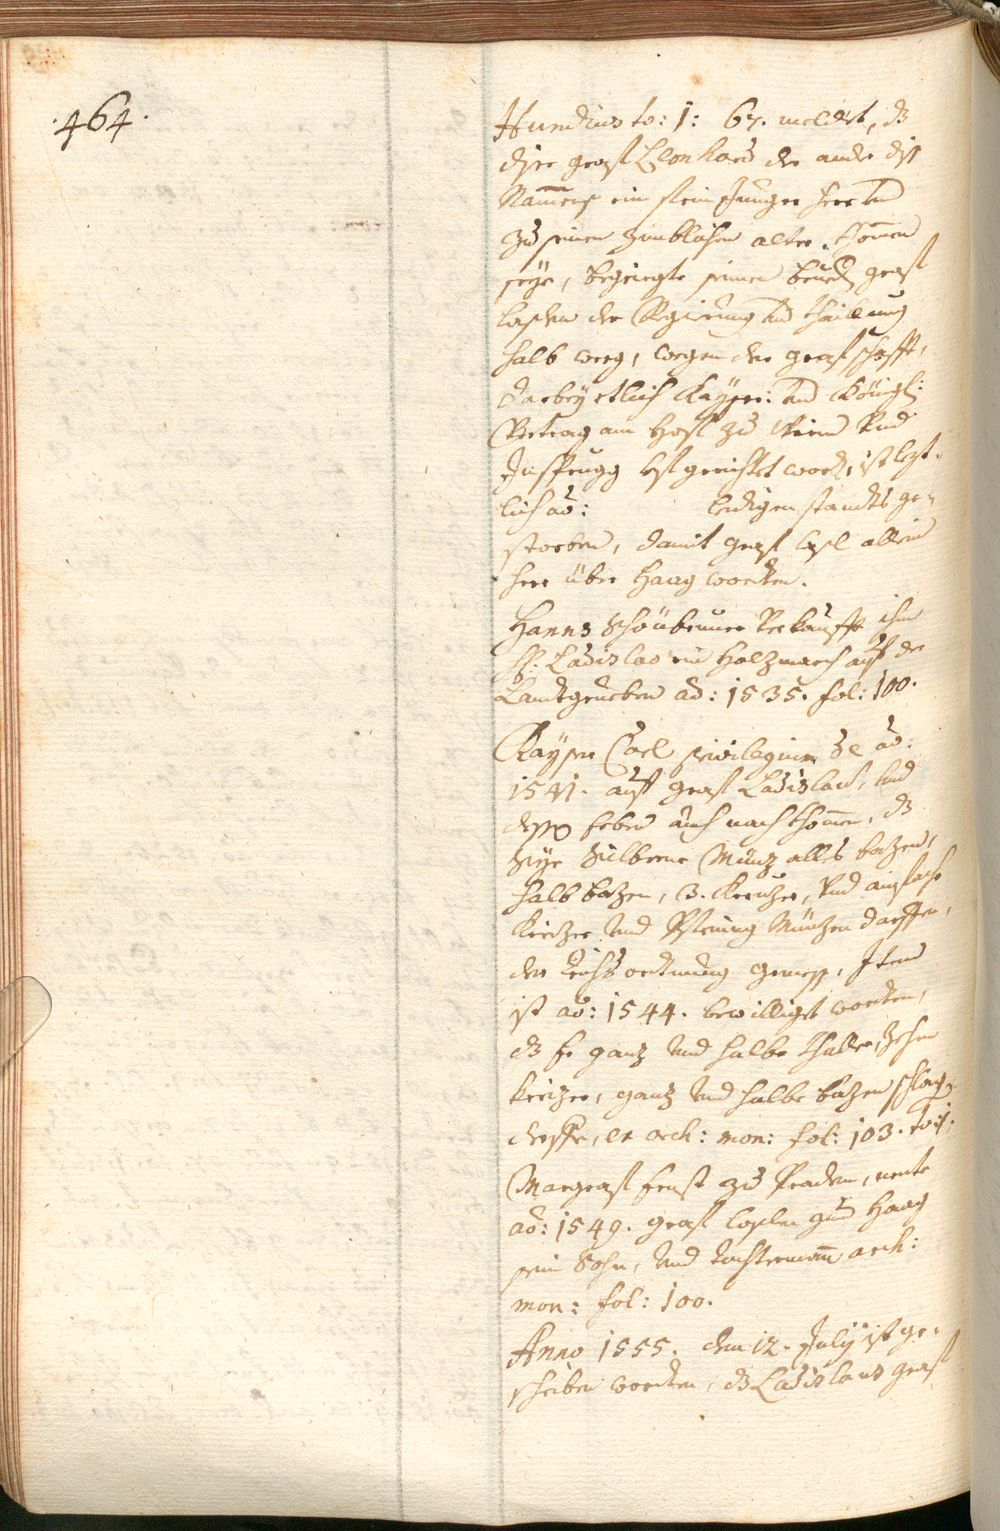 .464.
Hundius to: 1: 67. meldet, dz
diser graf Leonhard der ander diß
Nammens ein fein Junger herr und
zu seinen zimblichen alter khomen
seye, bezeigte seinen brued. graf
Laslen der Regierung und theillung
halb weeg, wegen der grafschafft,
darbey etlich Kayser: und Königl:
Vertrag am Hoff zu Wienn und
Insprugg ist gericht word, ist lezt-
lich ao: ledigen standts ge-
storben, damit graf Lasl allein
herr über Haag worden.
Hanns verkaufft ihm
H: Ladislao ein Holzmarch auf der
Landtgrueben ao: 1535. fol: 100.
Kayser Carl privilegium de ao:
1541. auf graf Ladislaus, und
dessen erben auch nachkhomen, dz
sye Silberne Münz alls bazen,
halb bazen, 3. Kreuzer, und ainfache
Kreizer und Pfening Münzen dörffen,
der Reichs ordtnung gemess, Item
ist ao: 1544. bewilliget worden,
dz Er ganz und halbe thaller, zehen
Kreizer, ganz und halbe bazen schlag
derffe, ex arch: mon: fol: 103.
Margraf Ernst zu Baaden, nente
ao: 1549. graf Laslen zum Haag
sein Sohn, und tochtermann arch:
mon: fol: 100.
Anno 1555. den 12. July ist ge-
schriben worden, dz Ladislaus graf